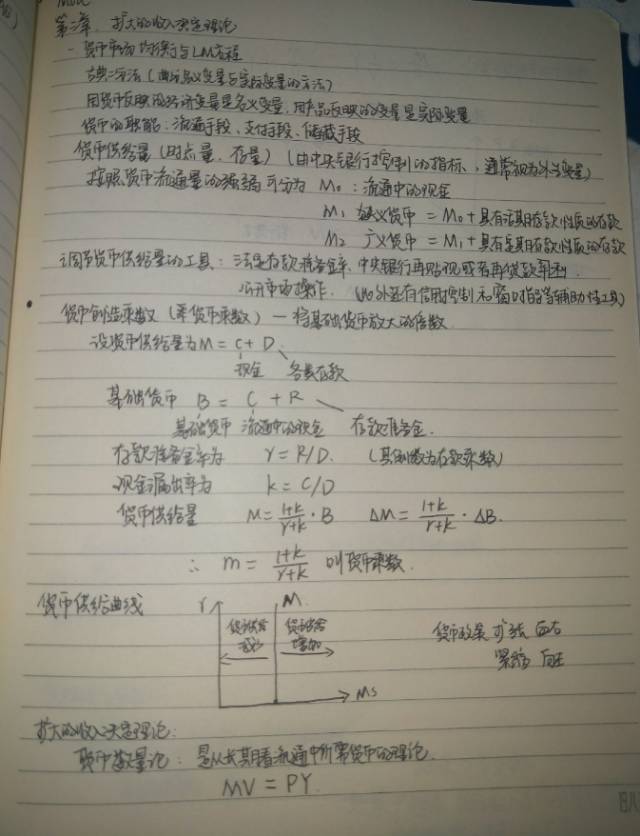 第二章. 扩大的收入决定理论
一 货币市场均衡与LM方程
古典二分法 (画分名义变量与实际变量的方法)
用货币反映的经济变量是名义变量, 用产品反映的变量是实际变量
货币的职能: 流通手段、支付手段、储藏手段
货币供给量 (时点量、存量) (由中央银行控制的指标, 通常视为外生变量)
按照货币流通量的强弱可分为 M₀: 流通中的现金
M₁ 狭义货币 = M₀ + 具有活期存款性质的存款
M₂ 广义货币 = M₁ + 具有定期存款性质的存款
调节货币供给量的工具: 法定存款准备金率, 中央银行再贴现或者再贷款利率.
公开市场操作. (此外还有信用控制和窗口指导等辅助性工具)
货币创造乘数 (乘货币乘数) — 将基础货币放大的倍数.
设货币供给量为 M = C + D
现金 各类存款
基础货币 B = C + R
基础货币 流通中的现金 存款准备金.
存款准备金率为 r = R/D. (其倒数为存款乘数)
现金漏出率为 k = C/D
货币供给量 M = (1+k)/(r+k) · B ΔM = (1+k)/(r+k) · ΔB.
∴ m = (1+k)/(r+k) 叫货币乘数.
货币供给曲线 r M
货币供给 货币供给 货币政策 扩张 向右
减少 增加 紧缩 向左
Ms
扩大的收入决定理论:
货币数量论: 是从长期看流通中所需货币的理论.
MV = PY